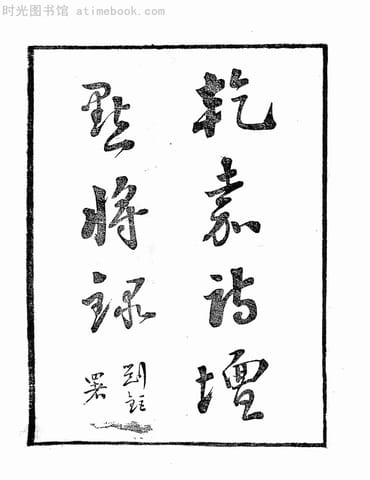 时光图书馆 atimebook.com
乾嘉詩壇
點將録
署